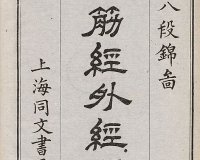 八段錦啚
筋經外經
上海同文書